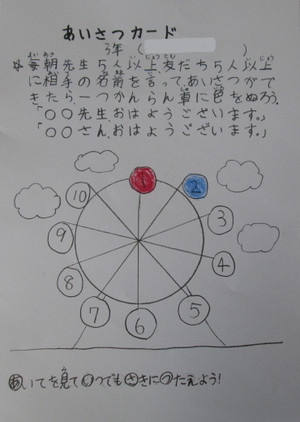 あいさつカード
3年（　　　　　）
☆毎朝先生5人以上、友だち5人以上
に相手の名前を言って、あいさつがで
きたら、一つかんらん車に色をぬろう。
「〇〇先生おはようございます。」
「〇〇さん、おはようございます。」
1
2
3
4
5
6
7
8
9
10
あいてを見ていつでもさきにつたえよう！